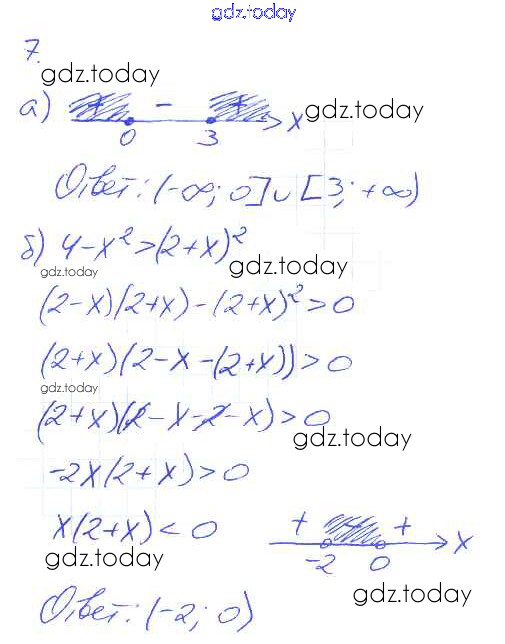 gdz.today
7.
gdz.today
а) + - + 0 3 x gdz.today
Ответ: (-∞; 0] ∪ [3; +∞)
б) 4-x²>(2+x)²
gdz.today gdz.today
(2-x)(2+x)-(2+x)²>0
(2+x)(2-x-(2+x))>0
gdz.today
(2+x)(2-x-2-x)>0
gdz.today
-2x(2+x)>0
x(2+x)<0 + - + -2 0 x
gdz.today
gdz.today
Ответ: (-2; 0)